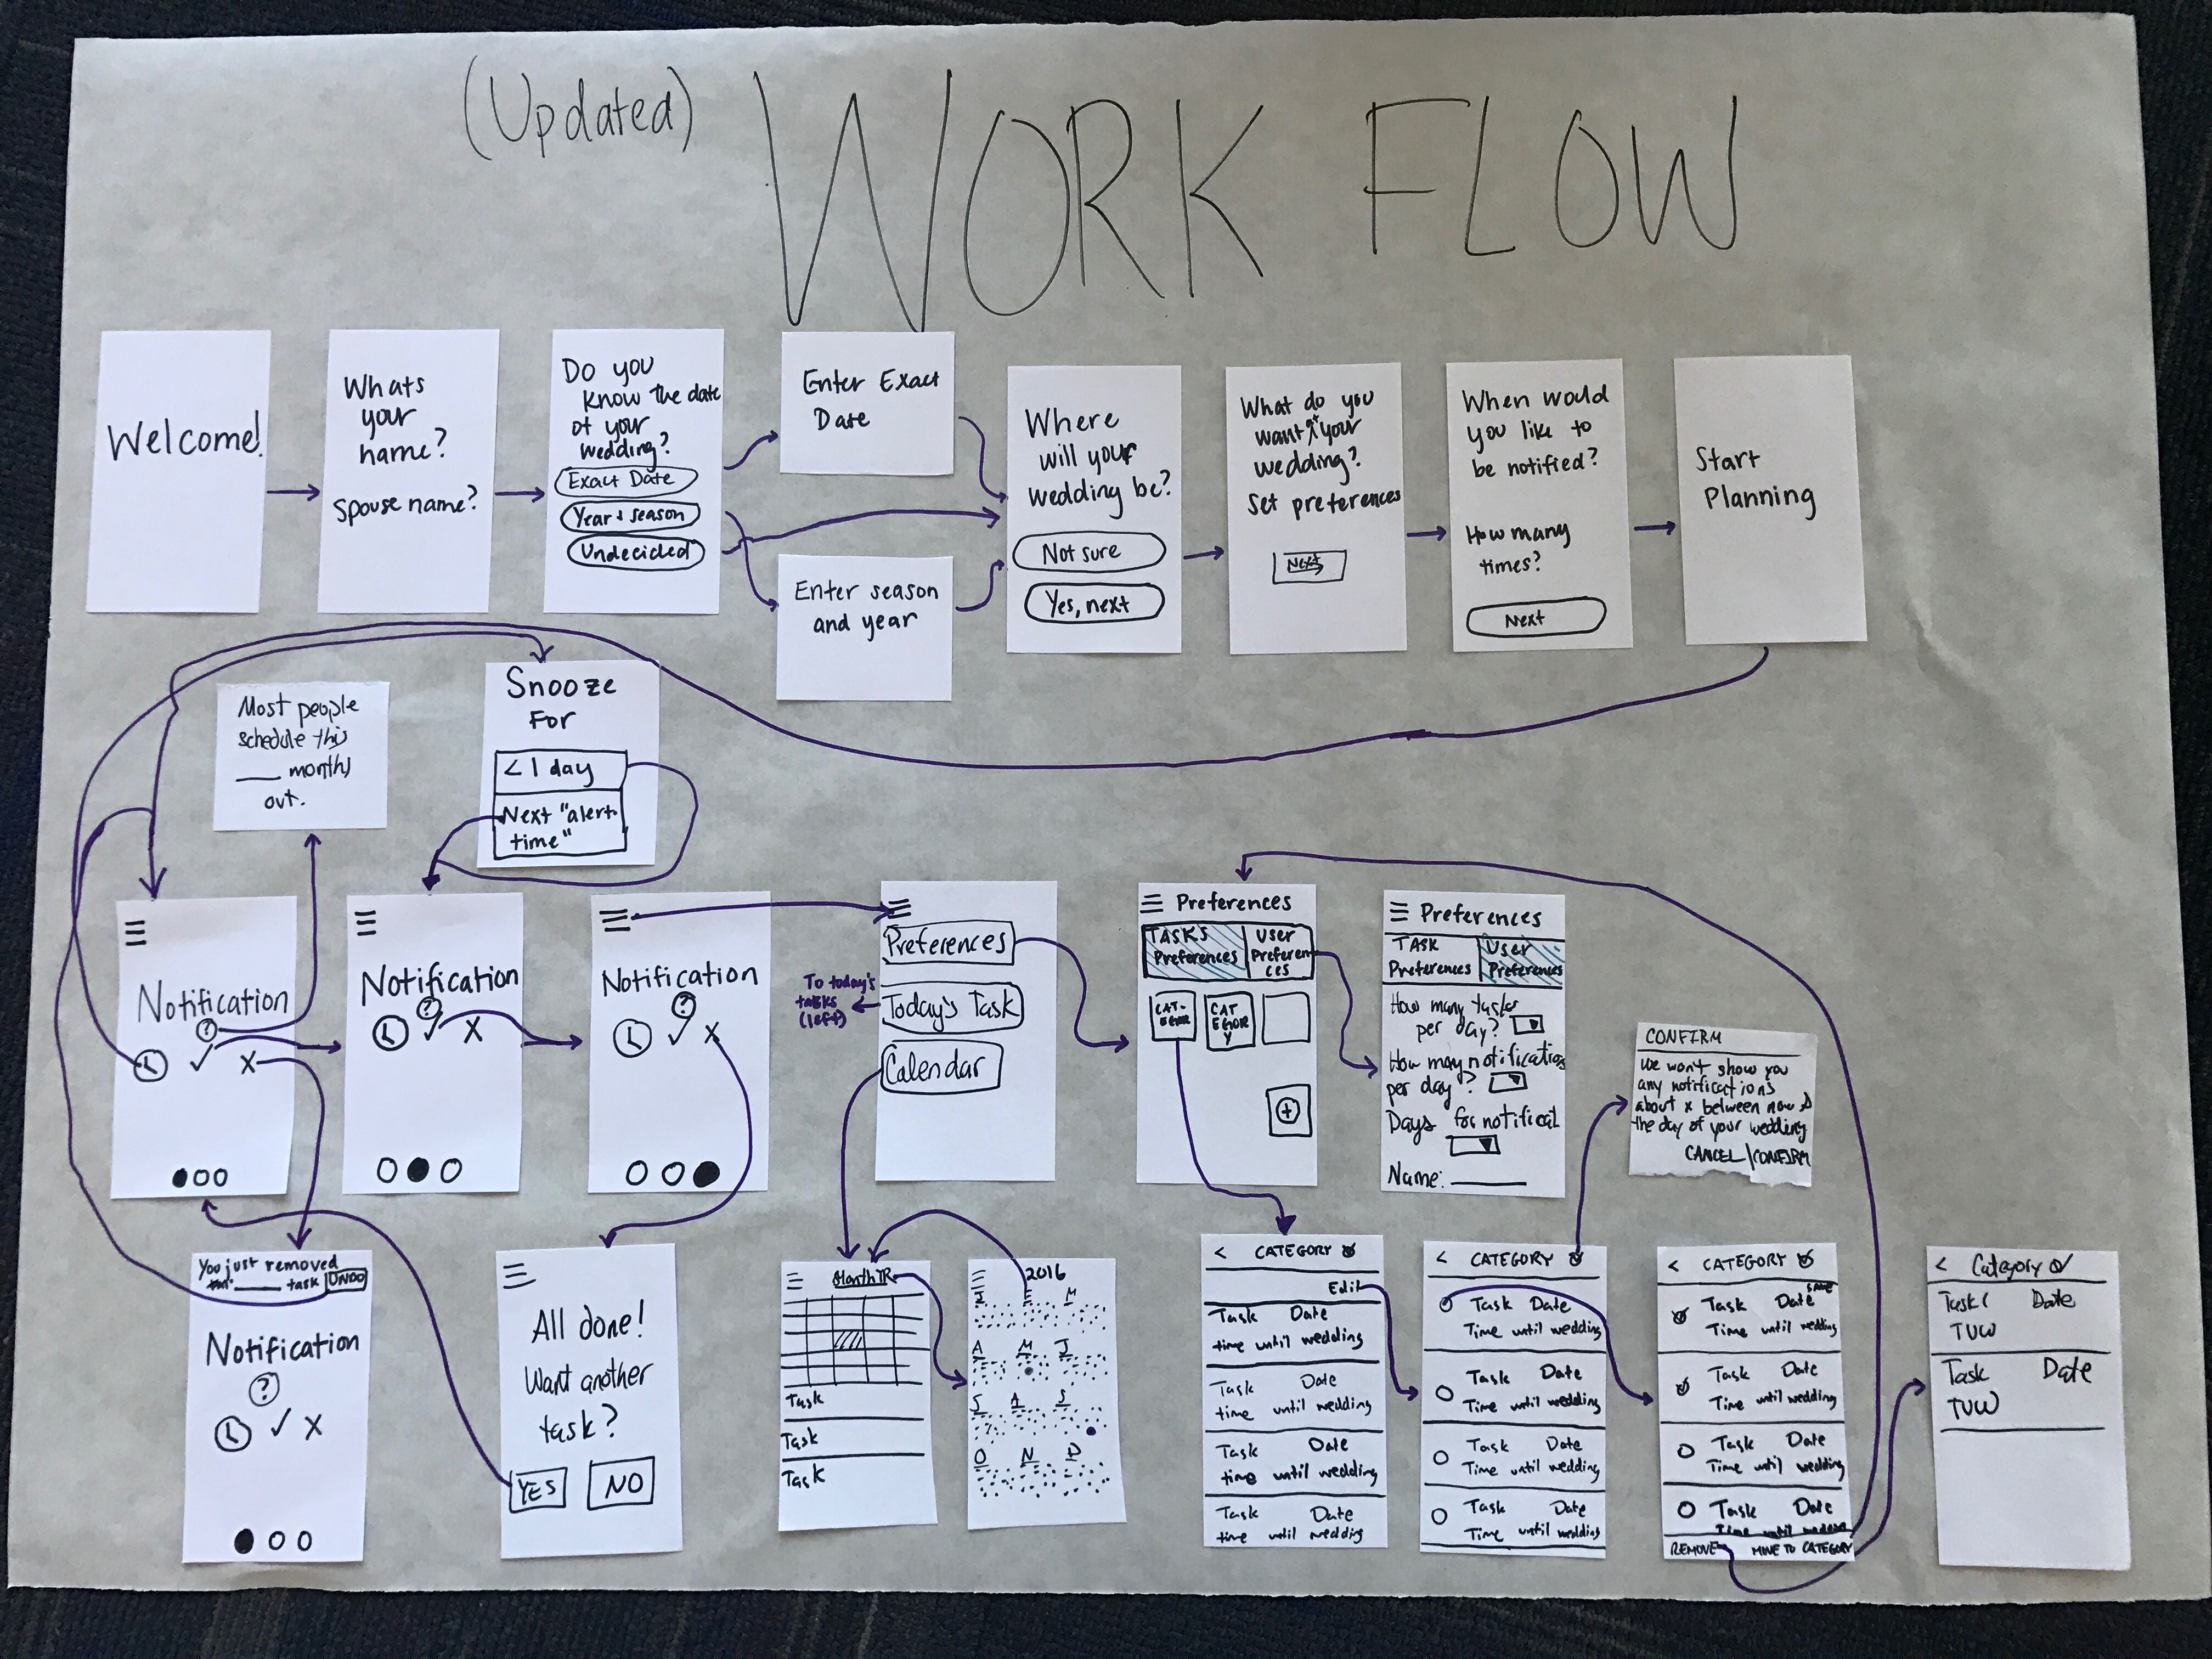 (Updated) WORK FLOW
Welcome!
Whats
your
name?
Spouse name?
Do you
know the date
of your
wedding?
Exact Date
Year + season
Undecided
Enter Exact
Date
Enter season
and year
Where
will your
wedding be?
Not sure
Yes, next
What do you
want your
wedding?
Set preferences
Next
When would
you like to
be notified?
How many
times?
Next
Start
Planning
Most people
schedule this
___ months
out.
Snooze
For
< 1 day
Next "alert
time"
Notification
?
✓ X
Notification
?
✓ X
Notification
?
✓ X
Preferences
Today's Task
Calendar
To today's
tasks
(left)
Preferences
TASKS
Preferences
User
Preferen
ces
CAT-
EGORY
CAT
EGOR
Y
+
Preferences
TASK
Preferences
User
Preferences
How many tasks
per day?
How many notification
per day?
Days for notificat
Name: ____
CONFIRM
We won't show you
any notifications
about x between now &
the day of your wedding
CANCEL | CONFIRM
You just removed
____ task UNDO
Notification
?
✓ X
All done!
Want another
task?
YES NO
Month YR
Task
Task
Task
2016
J F M
A M J
J A S
O N D
< CATEGORY
Edit
Task Date
time until wedding
Task Date
time until wedding
Task Date
time until wedding
Task Date
time until wedding
< CATEGORY
Task Date
Time until wedding
Task Date
Time until wedding
Task Date
Time until wedding
Task Date
Time until wedding
< CATEGORY
SAVE
Task Date
Time until wedding
Task Date
Time until wedding
Task Date
Time until wedding
Task Date
Time until wedding
REMOVE MOVE TO CATEGORY
< Category
Task Date
TUW
Task Date
TUW